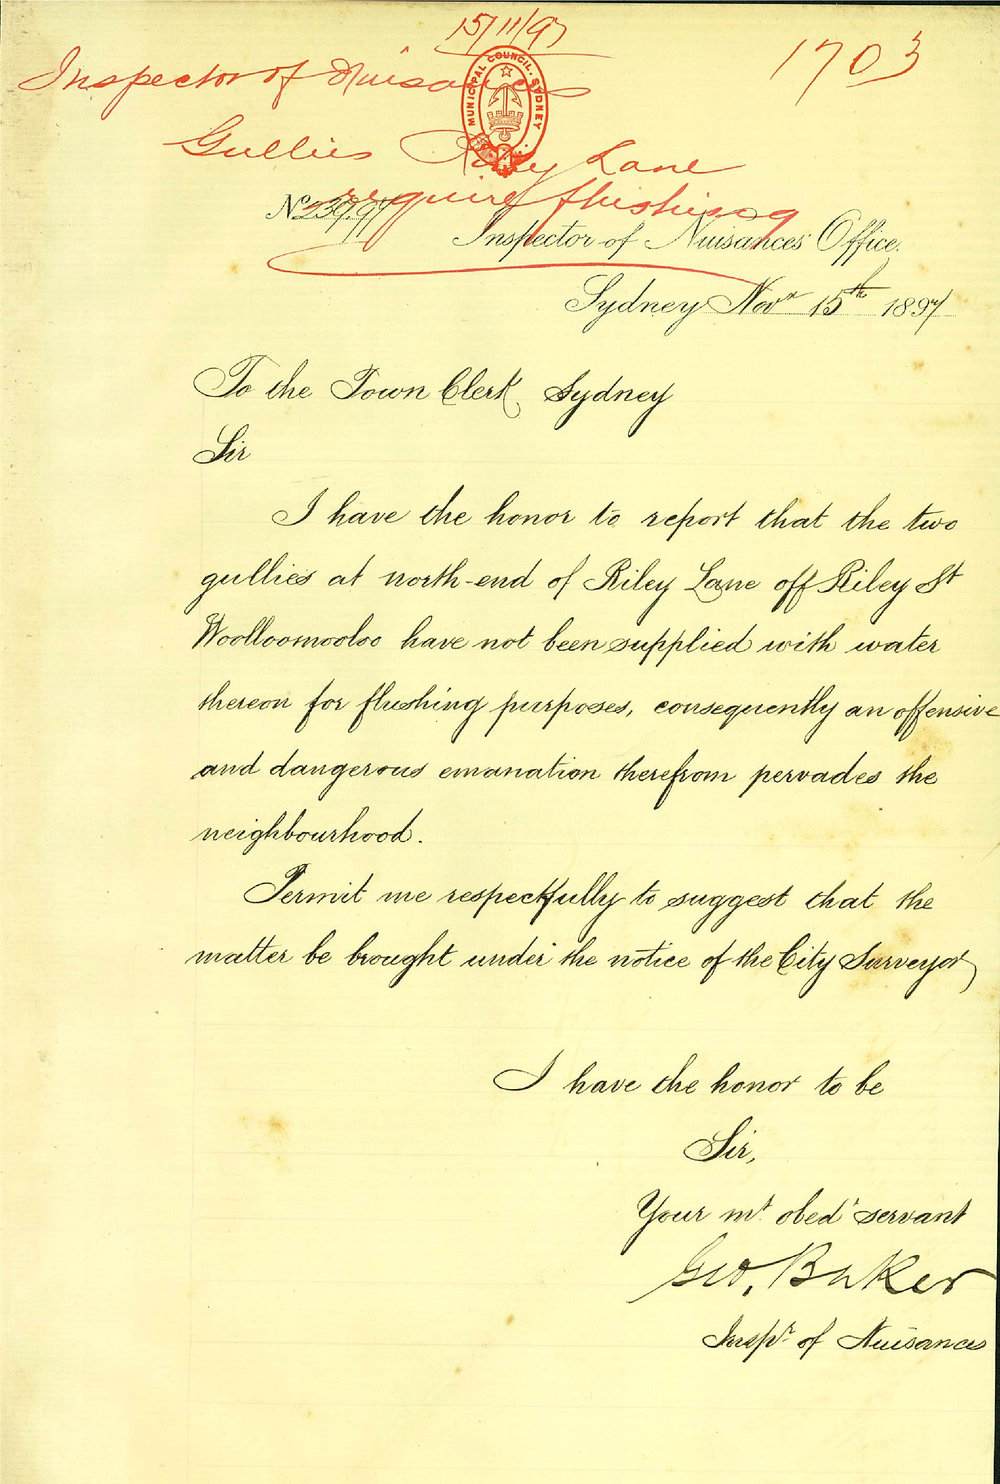 15/11/97
1703
Inspector of Nuisances
MUNICIPAL COUNCIL. SYDNEY
Gullies Riley Lane
require flushing
No 239/97
Inspector of Nuisances' Office.
Sydney Novr 15th 1897
To the Town Clerk, Sydney
Sir
I have the honor to report that the two
gullies at north-end of Riley Lane off Riley St
Woolloomooloo have not been supplied with water
thereon for flushing purposes, consequently an offensive
and dangerous emanation therefrom pervades the
neighbourhood.
Permit me respectfully to suggest that the
matter be brought under the notice of the City Surveyor
I have the honor to be
Sir,
Your mt. obedt servant
Geo. Baker
Inspr. of Nuisances